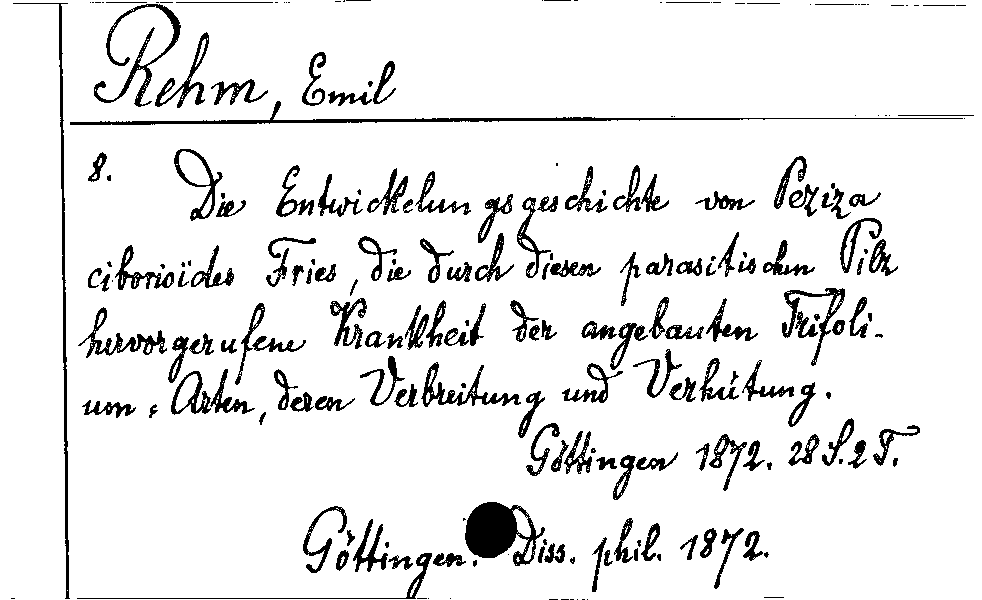 Rehm, Emil
8. Die Entwickelungsgeschichte von Peziza
ciborioïdes Fries, die durch diesen parasitischen Pilz
hervorgerufene Krankheit der angebauten Trifoli-
um-Arten, deren Verbreitung und Verhütung.
Göttingen 1872. 28 S. 2 T.
Göttingen. Diss. phil. 1872.